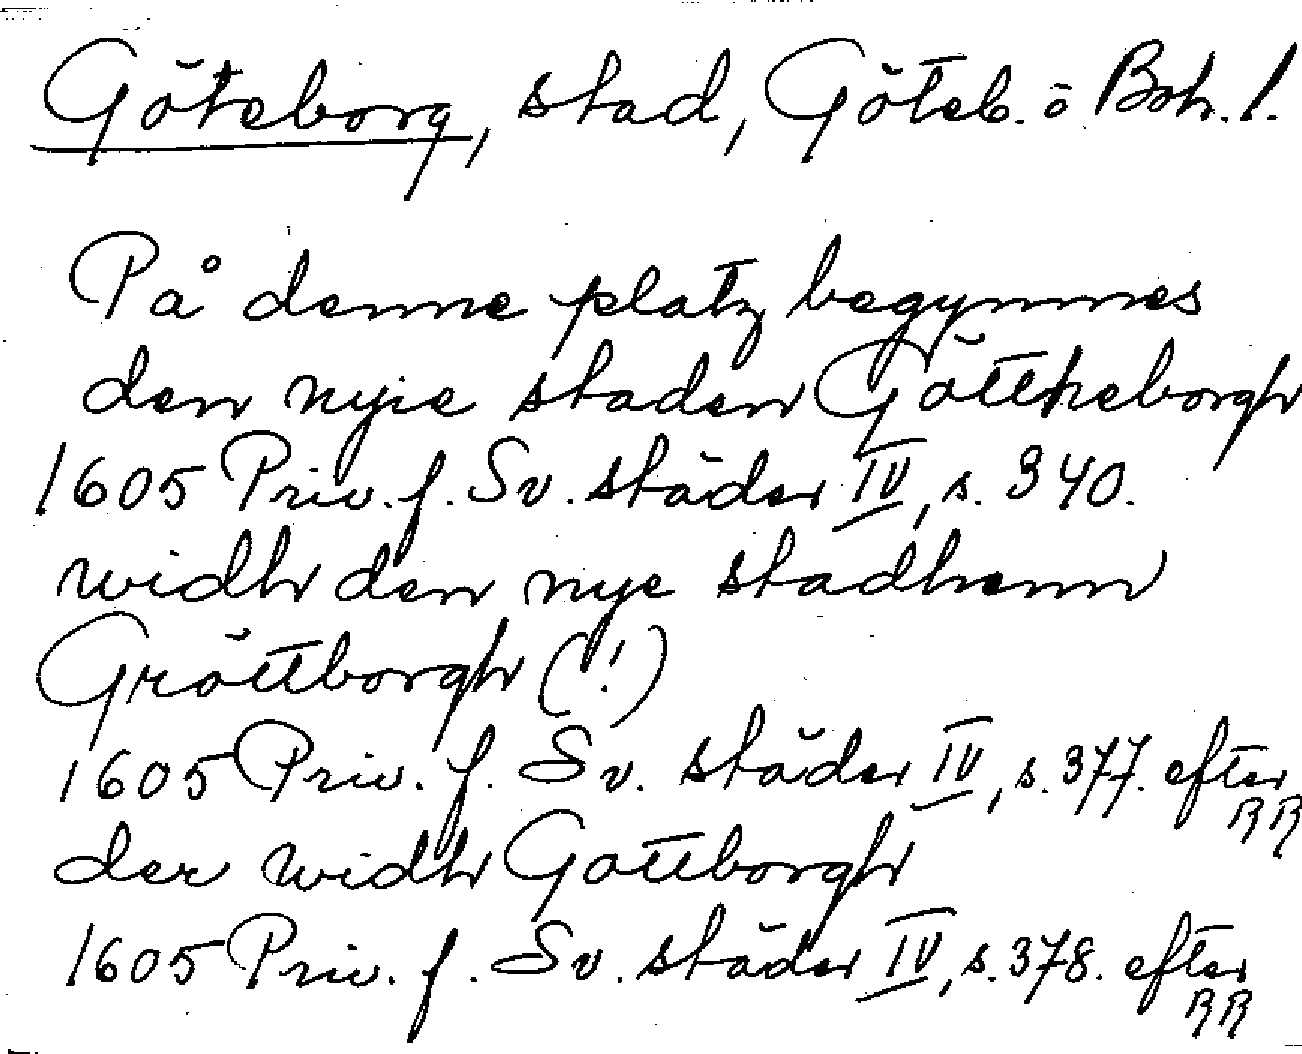 Göteborg, stad, Göteb. o Boh. l.
På denne platz begynnes
den nyie staden Götttheborgh
1605 Priv. f. Sv. städer IV, s. 340.
widh den nye stadhenn
Gröttborgh (!)
1605 Priv. f. Sv. städer IV, s. 377. efter
RR
der widh Gottborgh
1605 Priv. f. Sv. städer IV, s. 378. efter
RR